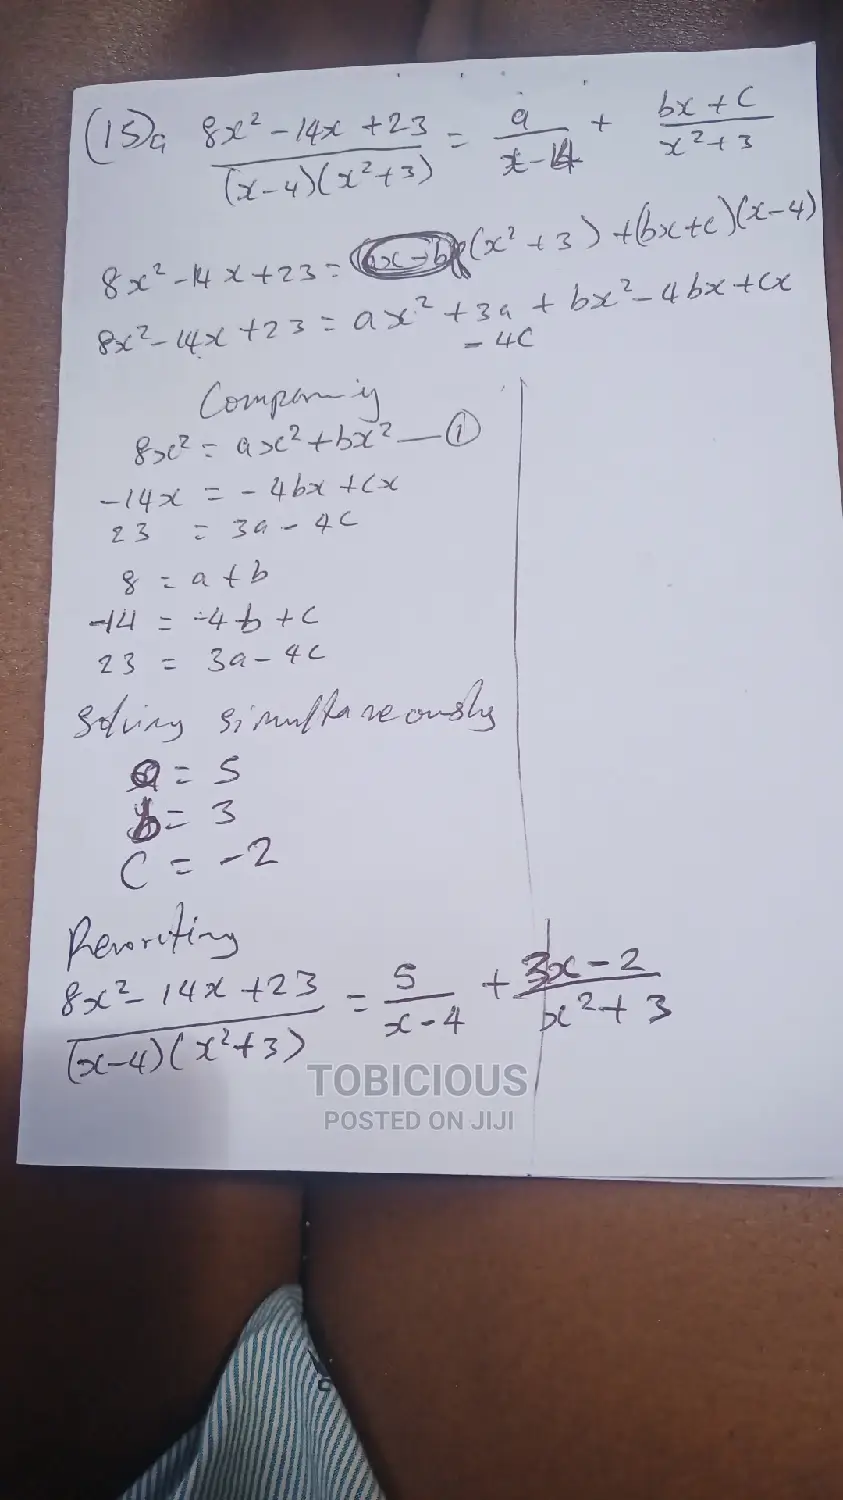 (15)a 8x² - 14x + 23 / (x-4)(x²+3) = a / x-4 + bx + c / x²+3
8x² - 14x + 23 = (x² + 3) + (bx+c)(x-4)
8x² - 14x + 23 = ax² + 3a + bx² - 4bx + cx
- 4c
8x² = ax² + bx² — ①
-14x = - 4bx + cx
23 = 3a - 4c
8 = a + b
-14 = -4b + c
23 = 3a - 4c
Solving simultaneously
a = 5
b = 3
C = -2
Rewriting
8x² - 14x + 23 / (x-4)(x²+3) = 5 / x-4 + 3x - 2 / x² + 3
TOBICIOUS
POSTED ON JIJI